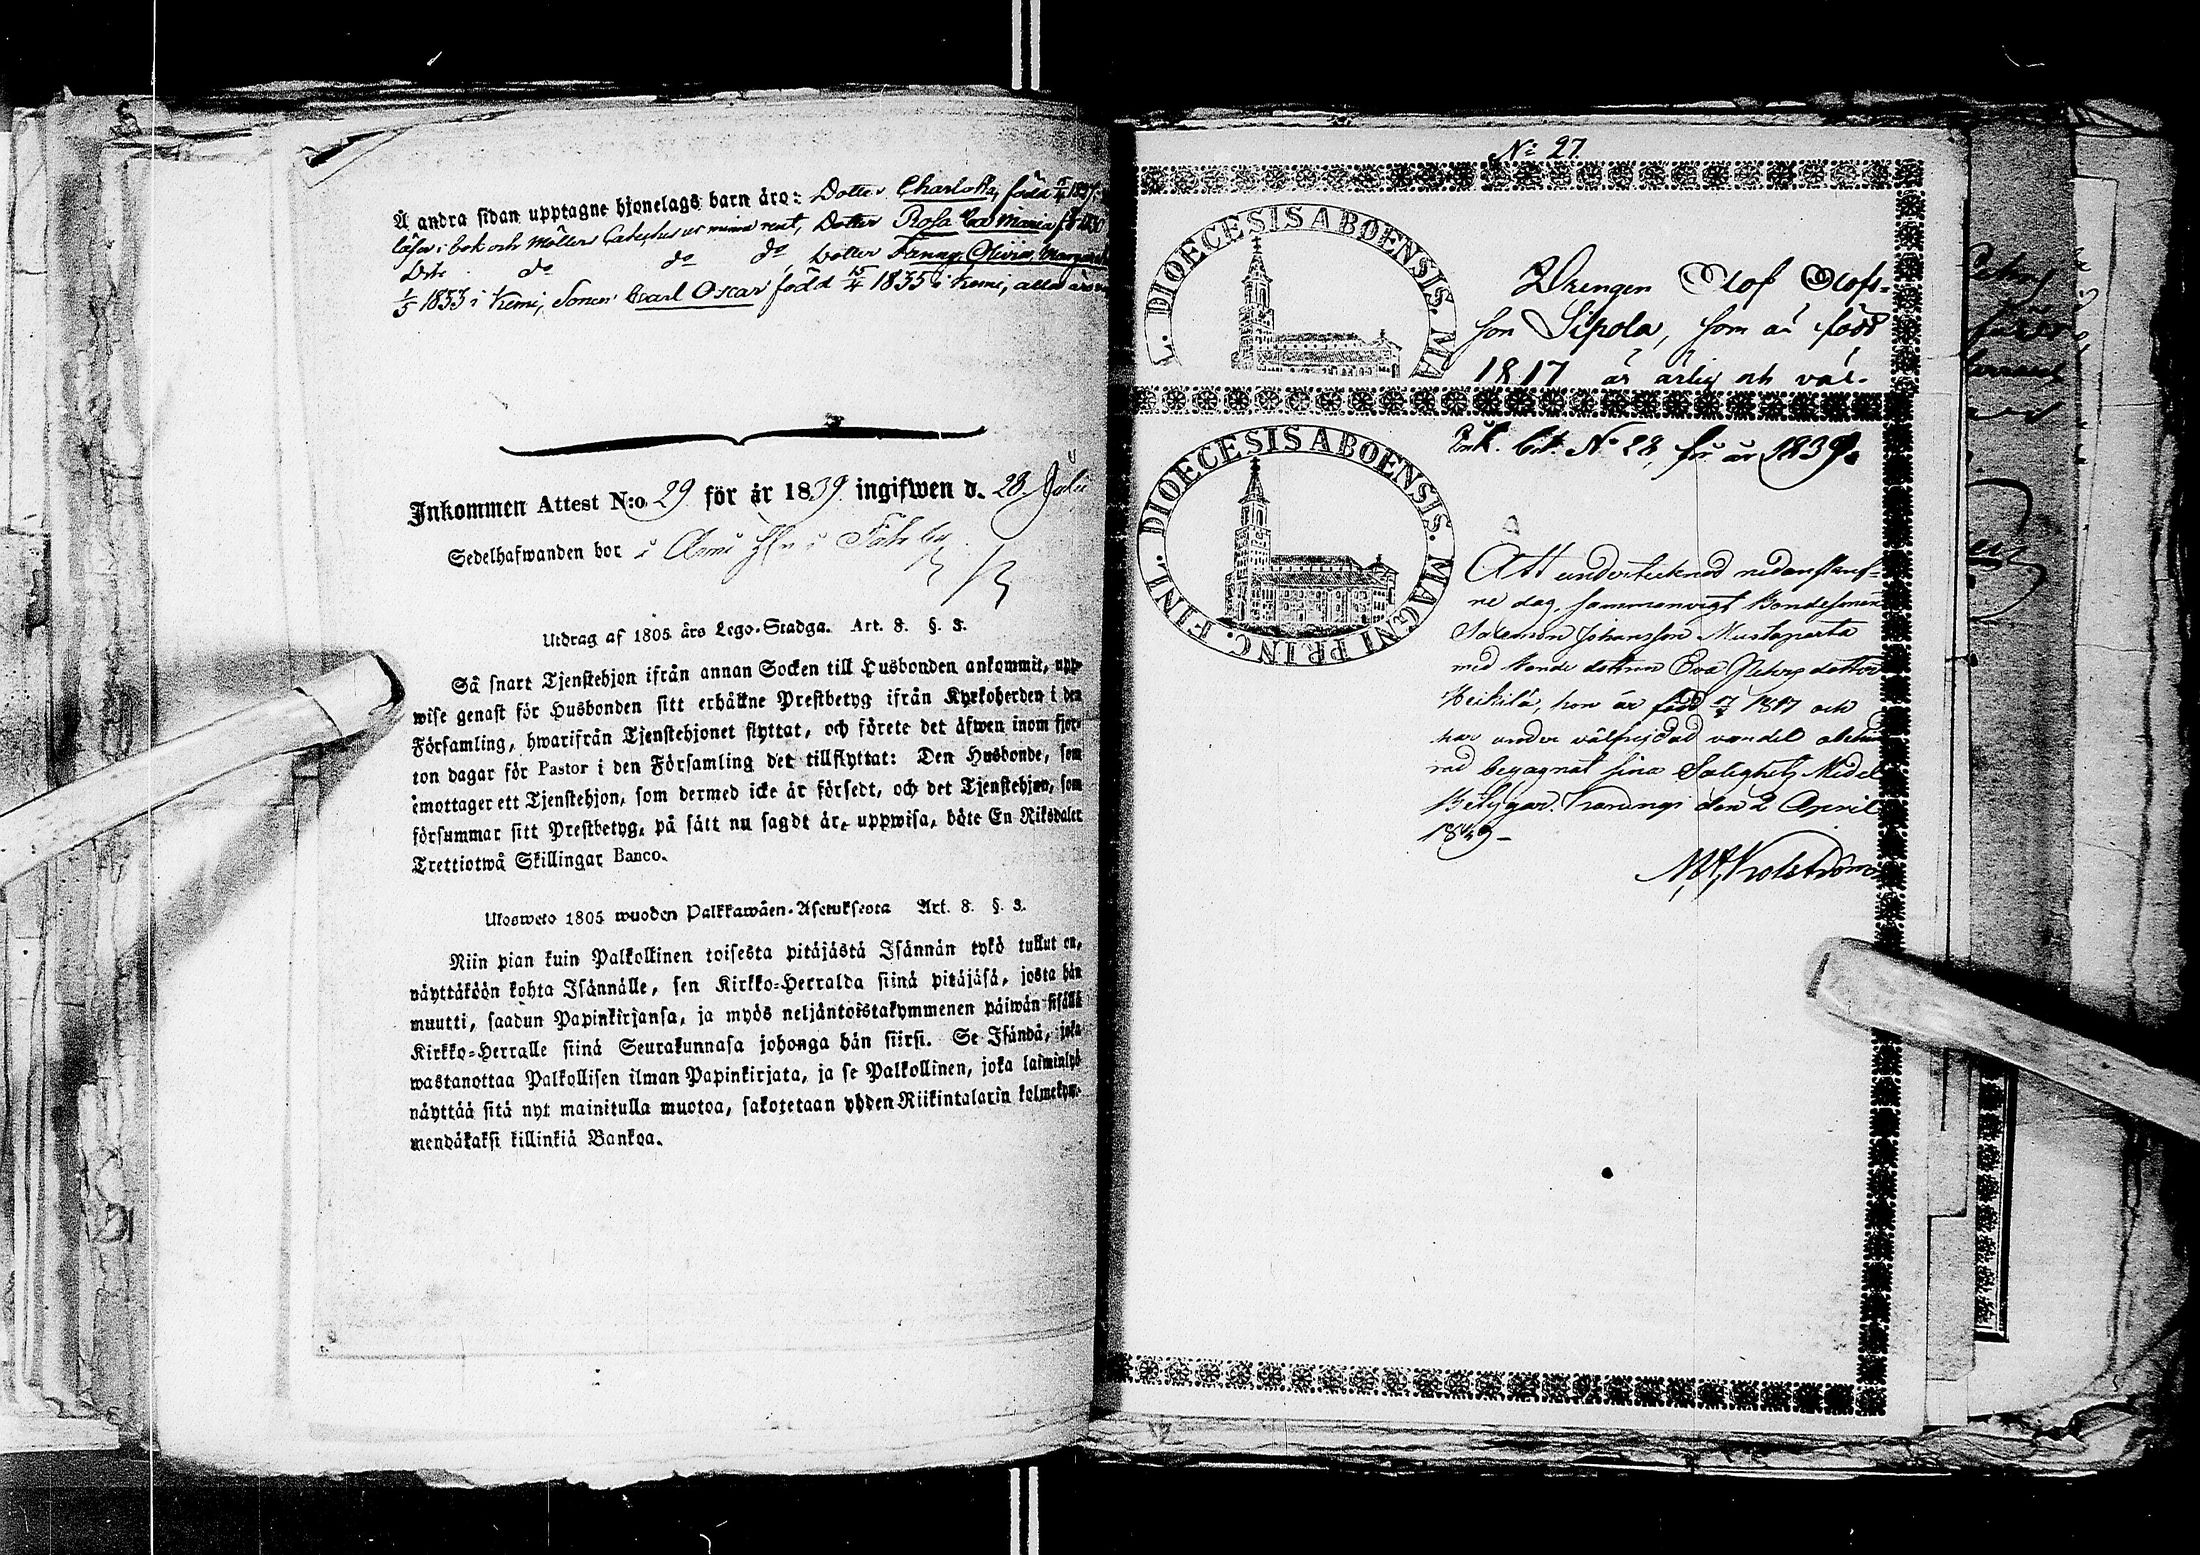 Å andra sidan upptagne hjonelags barn äro: Dotter Charlotta, född
läser i bok och Möllers Dotter Rosa Eva Maria
Dito do do do Dotter Fanny Olivia Margareta
1/5 1833 i Kemi, Sonen Carl Oscar född 15/4 1835 i Kemi, alla
Inkommen Attest N:o 29 för år 1839 ingifwen d. 28 Julii
Sedelhafwanden bor i
Utdrag af 1805 års Lego-Stadga. Art. 8. §. 3.
Så snart Tjenstehjon ifrån annan Socken till Husbonden ankommit, upp-
wise genast för Husbonden sitt erhållne Prestbetyg ifrån Kyrkoherden i den
Församling, hwarifrån Tjenstehjonet flyttat, och förete det äfwen inom fjor-
ton dagar för Pastor i den Församling det tillflyttat: Den Husbonde, som
emottager ett Tjenstehjon, som dermed icke är försedt, och det Tjenstehjon, som
försummar sitt Prestbetyg, på sätt nu sagdt är, uppwisa, böte En Riksdaler
Trettiotwå Skillingar Banco.
Ulosweto 1805 wuoden Palkkawäen-Asetuksesta Art. 8. §. 3.
Niin pian kuin Palkollinen toisesta pitäjästä Isännän tykö tullut on,
näyttäköön kohta Isännälle, sen Kirkko-Herralda siinä pitäjäsä, josta hän
muutti, saadun Papinkirjansa, ja myös neljäntoistakymmenen päiwän sisällä
Kirkko-Herralle siinä Seurakunnasa johonga hän siirsi. Se Isändä, joka
wastanottaa Palkollisen ilman Papinkirjata, ja se Palkollinen, joka laiminlyö
näyttää sitä nyt mainitulla muotoa, sakotetaan yhden Riikintalarin kolmekym-
mendäkaksi killinkiä Bankoa.
No 27.
L. DIOECESIS ABOENSIS. MA
Drengen Olof Olofs-
son Sipola, som är född
1817 är ärlig och väl-
Ink. bet. No 28, för år 1839.
DIOECESIS ABOENSIS. MAGNI PRINC. FINL.
Att undertecknad nedanskref-
ne dag sammanvigt Bondesonen
Salomon Johansson Mustaparta
med Bonde dottren Eva Petersdotter
Heikilä, hon är född 1817 och
har under välfrejdad vandel
rad begagnat sina Salighets Medel
Betygar. Karungi den 2 April
1839 -